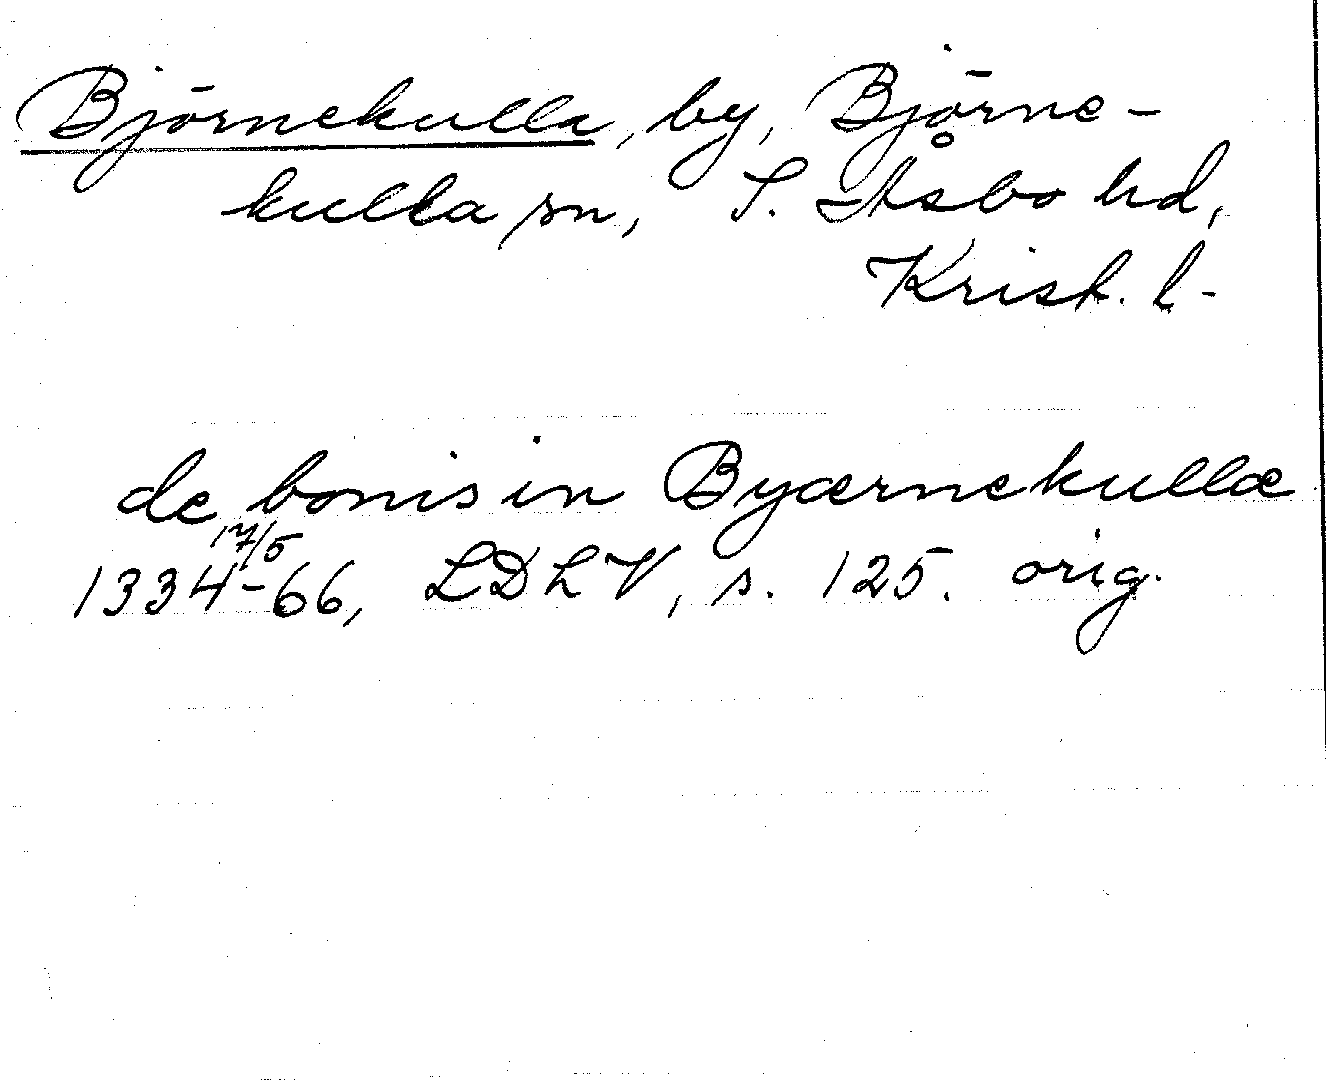 Björnekulla, by, Björne-
kulla sn, S. Åsbo hd,
Krist. l.
de bonis in Byærnekullæ
17/5
1334-66, LDLV, s. 125. orig.